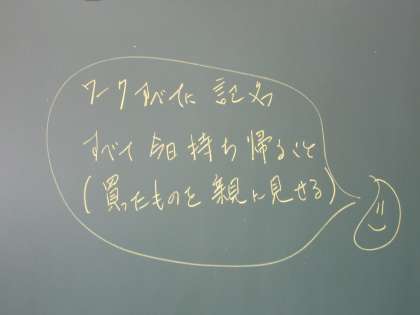 ワークすべてに 記名
すべて 今日 持ち帰ること
(買ったものを 親に見せる)